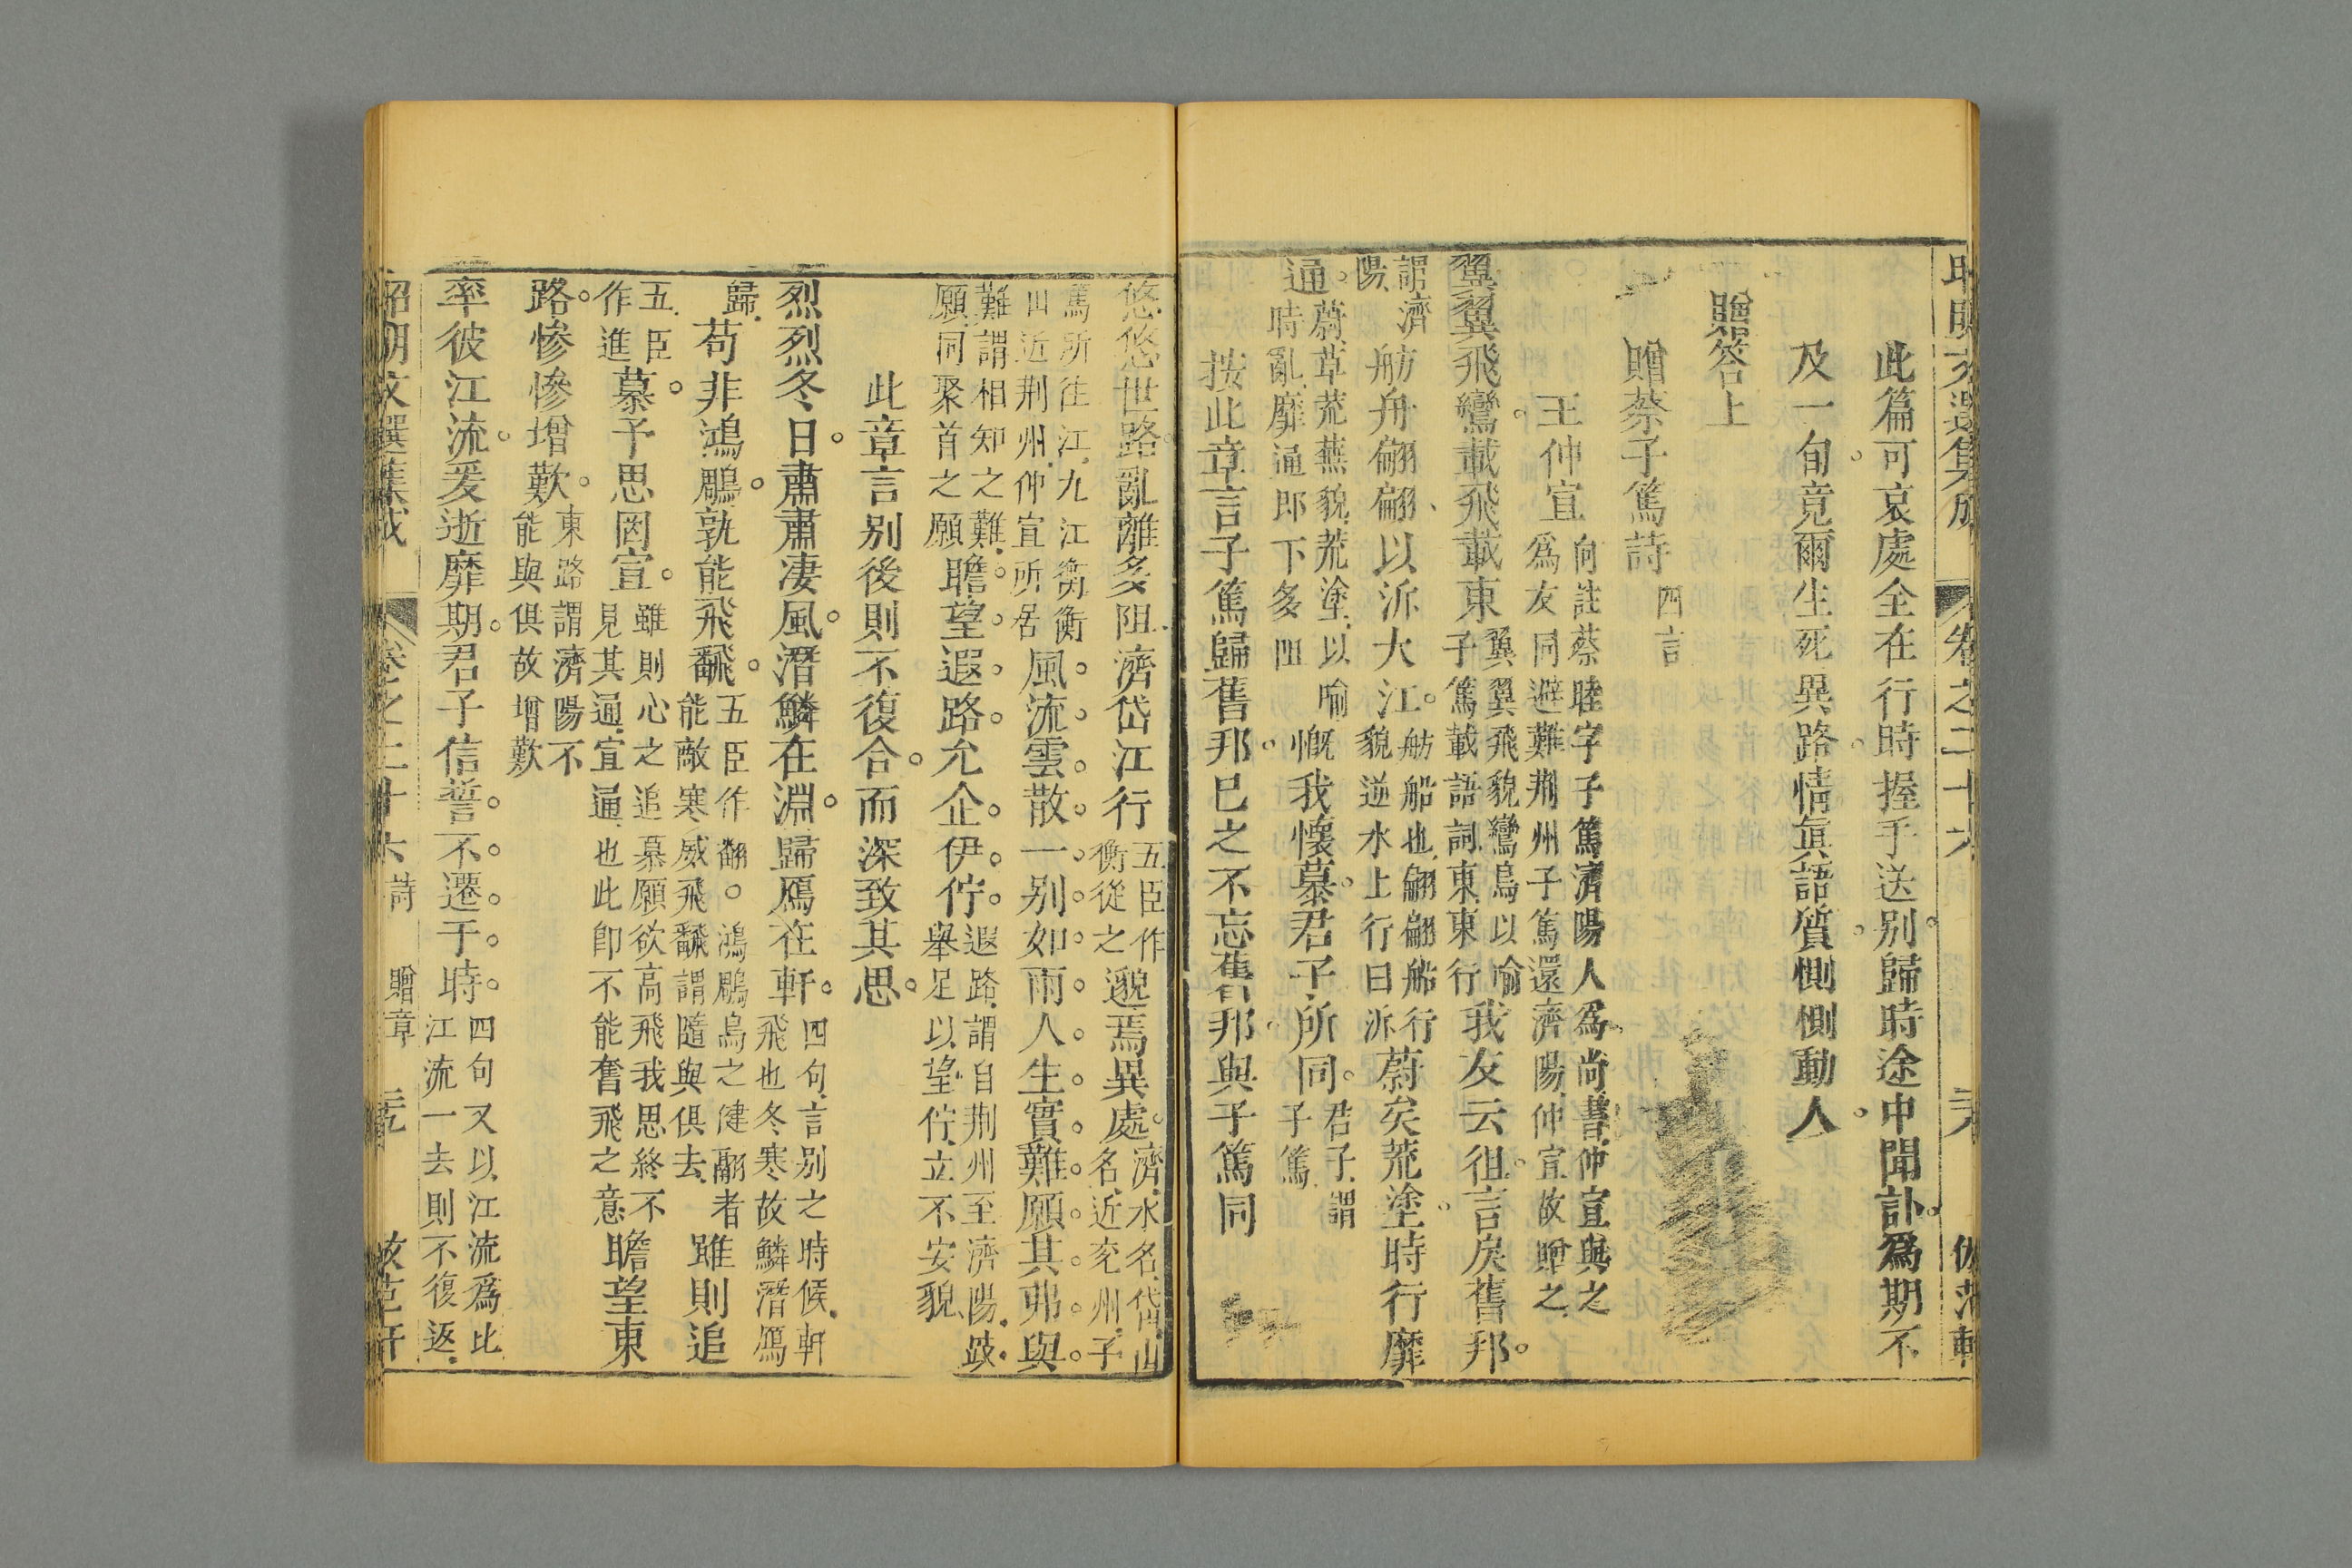 昭明文選集成 卷之二十六
此篇可哀處全在行時握手送別歸時途中聞訃爲期不
及一旬竟爾生死異路情眞語質惻惻動人
贈答上
贈蔡子篤詩 四言
王仲宣 向註蔡睦字子篤濟陽人爲尚書仲宣與之
爲友同避難荆州子篤還濟陽仲宣故贈之
翼翼飛鸞載飛載東 翼翼飛貌鸞鳥以喻
子篤載語詞東東行 我友云徂言戾舊邦
謂濟
陽 舫舟翩翩以泝大江 舫船也翩翩船行
貌逆水上行曰泝 蔚矣荒塗時行靡
通 蔚草荒蕪貌荒塗以喻
時亂靡通郎下多阻 慨我懷慕君子所同 君子謂
子篤
按此章言子篤歸舊邦已之不忘舊邦與子篤同
悠悠世路亂離多阻濟岱江行 五臣作
衡從之 邈焉異處 濟水名岱山
名近兖州子
篤所往江九江衡衡
山近荆州仲宣所居 風流雲散一別如雨人生實難願其弗與
難謂相知之難
願同聚首之願 瞻望遐路允企伊佇 遐路謂自荆州至濟陽跂
舉足以望佇立不安貌
此章言別後則不復合而深致其思
烈烈冬日肅肅凄風潛鱗在淵歸鴈在軒 四句言別之時候軒
飛也冬寒故鱗潛鴈
歸 苟非鴻鵰孰能飛飜 五臣作翻鴻鵰鳥之健翮者
能敵寒威飛飜謂隨與俱去 雖則追
五臣
作進 慕予思罔宣 雖則心之追慕願欲高飛我思終不
見其通宣通也此卽不能奮飛之意 瞻望東
路慘慘增歎 東路謂濟陽不
能與俱故增歎
率彼江流爰逝靡期君子信誓不遷于時 四句又以江流爲比
江流一去則不復返
昭明文選集成 卷之二十六 詩 贈章